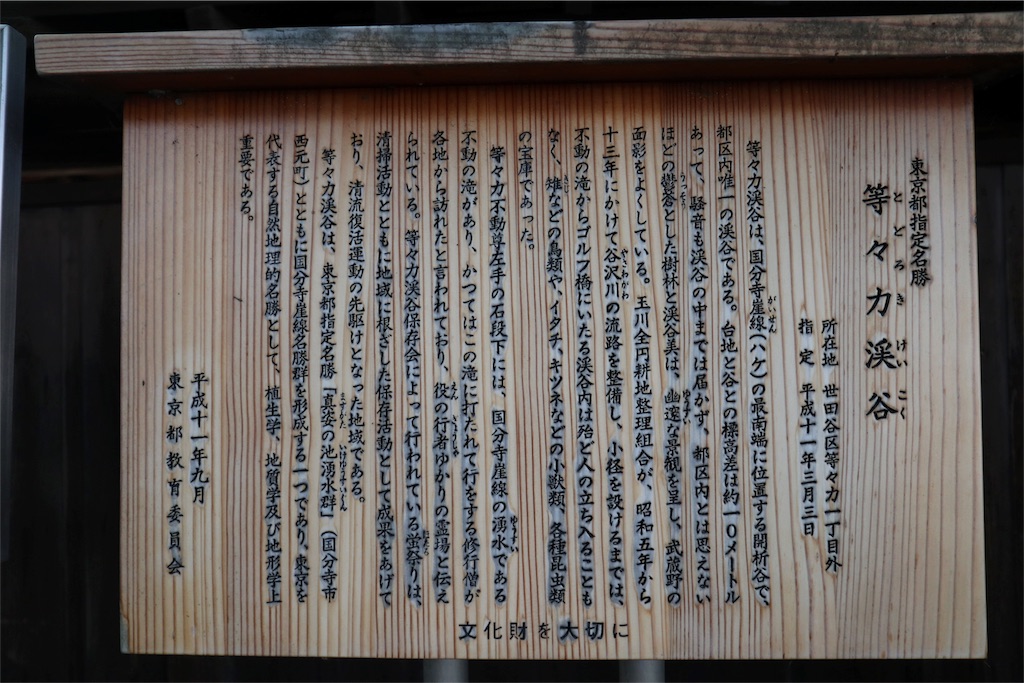 東京都指定名勝
等々力渓谷
とどろきけいこく
所在地 世田谷区等々力一丁目外
指定 平成十一年三月三日
等々力渓谷は、国分寺崖線(ハケ)の最南端に位置する開析谷で、
がいせん
都区内唯一の渓谷である。台地と谷との標高差は約一〇メートル
あって、騒音も渓谷の中までは届かず、都区内とは思えない
ほどの鬱蒼とした樹林と渓谷美は、幽邃な景観を呈し、武蔵野の
うっそう
ゆうすい
面影をよくしている。玉川全円耕地整理組合が、昭和五年から
十三年にかけて谷沢川の流路を整備し、小径を設けるまでは、
やざわがわ
不動の滝からゴルフ橋にいたる渓谷内は殆ど人の立ち入ることも
なく、雉などの鳥類や、イタチ、キツネなどの小獣類、各種昆虫類
きじ
の宝庫であった。
等々力不動尊左手の石段下には、国分寺崖線の湧水である
ゆうすい
不動の滝があり、かつてはこの滝に打たれて行をする修行僧が
各地から訪れたと言われており、役の行者ゆかりの霊場と伝え
えん ぎょうじゃ
られている。等々力渓谷保存会によって行われている蛍祭りは、
ほたる
清掃活動とともに地域に根ざした保存活動として成果をあげて
おり、清流復活運動の先駆けとなった地域である。
等々力渓谷は、東京都指定名勝「真姿の池湧水群」(国分寺市
ますがた いけゆうすいぐん
西元町)とともに国分寺崖線名勝群を形成する一つであり、東京を
代表する自然地理的名勝として、植生学、地質学及び地形学上
重要である。
平成十一年九月
東京都教育委員会
文化財を大切に